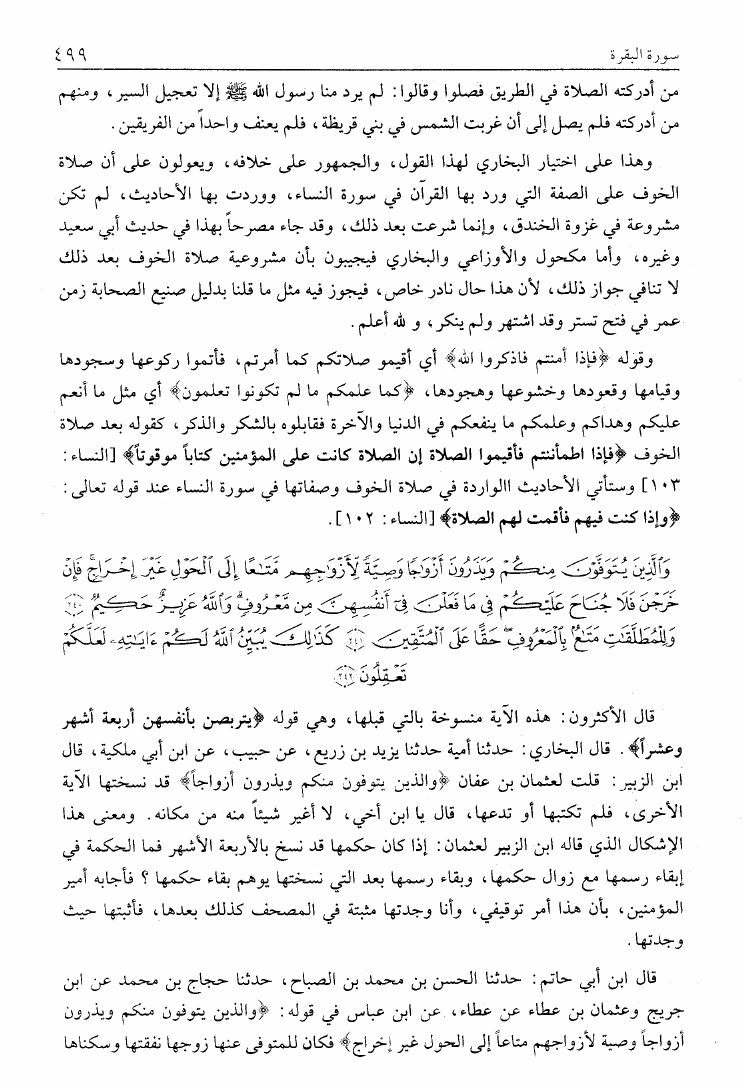 سورة البقرة ٤٩٩
من أدركته الصلاة في الطريق فصلوا وقالوا: لم يرد منا رسول الله ﷺ إلا تعجيل السير، ومنهم
من أدركته فلم يصل إلى أن غربت الشمس في بني قريظة، فلم يعنف واحداً من الفريقين.
وهذا على اختيار البخاري لهذا القول، والجمهور على خلافه، ويعولون على أن صلاة
الخوف على الصفة التي ورد بها القرآن في سورة النساء، ووردت بها الأحاديث، لم تكن
مشروعة في غزوة الخندق، وإنما شرعت بعد ذلك، وقد جاء مصرحاً بهذا في حديث أبي سعيد
وغيره، وأما مكحول والأوزاعي والبخاري فيجيبون بأن مشروعية صلاة الخوف بعد ذلك
لا تنافي جواز ذلك، لأن هذا حال نادر خاص، فيجوز فيه مثل ما قلنا بدليل صنيع الصحابة زمن
عمر في فتح تستر وقد اشتهر ولم ينكر، و لله أعلم.
وقوله ﴿فإذا أمنتم فاذكروا الله﴾ أي أقيمو صلاتكم كما أمرتم، فأتموا ركوعها وسجودها
وقيامها وقعودها وخشوعها وهجودها، ﴿كما علمكم ما لم تكونوا تعلمون﴾ أي مثل ما أنعم
عليكم وهداكم وعلمكم ما ينفعكم في الدنيا والآخرة فقابلوه بالشكر والذكر، كقوله بعد صلاة
الخوف ﴿فإذا اطمأننتم فأقيموا الصلاة إن الصلاة كانت على المؤمنين كتاباً موقوتاً﴾ [النساء:
١٠٣] وستأتي الأحاديث االواردة في صلاة الخوف وصفاتها في سورة النساء عند قوله تعالى:
﴿وإذا كنت فيهم فأقمت لهم الصلاة﴾ [النساء: ١٠٢].
وَٱلَّذِينَ يُتَوَفَّوْنَ مِنكُمْ وَيَذَرُونَ أَزْوَٰجًا وَصِيَّةً لِّأَزْوَٰجِهِم مَّتَـٰعًا إِلَى ٱلْحَوْلِ غَيْرَ إِخْرَاجٍ ۚ فَإِنْ
خَرَجْنَ فَلَا جُنَاحَ عَلَيْكُمْ فِى مَا فَعَلْنَ فِىٓ أَنفُسِهِنَّ مِن مَّعْرُوفٍ ۗ وَٱللَّهُ عَزِيزٌ حَكِيمٌ ٢٤٠
وَلِلْمُطَلَّقَـٰتِ مَتَـٰعٌۢ بِٱلْمَعْرُوفِ ۖ حَقًّا عَلَى ٱلْمُتَّقِينَ ٢٤١ كَذَٰلِكَ يُبَيِّنُ ٱللَّهُ لَكُمْ ءَايَـٰتِهِۦ لَعَلَّكُمْ
تَعْقِلُونَ ٢٤٢
قال الأكثرون: هذه الآية منسوخة بالتي قبلها، وهي قوله ﴿يتربصن بأنفسهن أربعة أشهر
وعشراً﴾. قال البخاري: حدثنا أمية حدثنا يزيد بن زريع، عن حبيب، عن ابن أبي ملكية، قال
ابن الزبير: قلت لعثمان بن عفان ﴿والذين يتوفون منكم ويذرون أزواجاً﴾ قد نسختها الآية
الأخرى، فلم تكتبها أو تدعها، قال يا ابن أخي، لا أغير شيئاً منه من مكانه. ومعنى هذا
الإشكال الذي قاله ابن الزبير لعثمان: إذا كان حكمها قد نسخ بالأربعة الأشهر فما الحكمة في
إبقاء رسمها مع زوال حكمها، وبقاء رسمها بعد التي نسختها يوهم بقاء حكمها ؟ فأجابه أمير
المؤمنين، بأن هذا أمر توقيفي، وأنا وجدتها مثبتة في المصحف كذلك بعدها، فأثبتها حيث
وجدتها.
قال ابن أبي حاتم: حدثنا الحسن بن محمد بن الصباح، حدثنا حجاج بن محمد عن ابن
جريج وعثمان بن عطاء عن عطاء، عن ابن عباس في قوله: ﴿والذين يتوفون منكم ويذرون
أزواجاً وصية لأزواجهم متاعاً إلى الحول غير إخراج﴾ فكان للمتوفى عنها زوجها نفقتها وسكناها